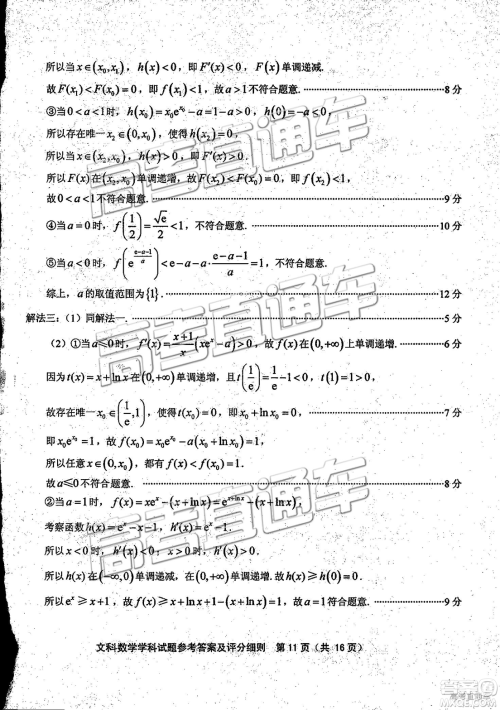 所以当 x∈(x₀,x₁), h(x)<0, 即 F′(x)<0, F(x) 单调递减.
故 F(x₁)<F(x₀)=0, 即 f(x₁)<1, 故 a>1 不符合题意. 8 分
③当 0<a<1 时, h(x₀)=x₀e^{x₀}-a=1-a>0, h(0)=-a<0,
所以存在唯一 x₂∈(0,x₀), 使得 h(x₂)=0.
所以当 x∈(x₂,x₀), h(x)>0, 即 F′(x)>0.
所以 F(x) 在 (x₂,x₀) 单调递增, 故 F(x₂)<F(x₀)=0, 即 f(x₂)<1,
故 0<a<1 不符合题意. 9 分
④当 a=0 时, f(1/2)=√e/2<1, 不符合题意. 10 分
⑤当 a<0 时, f(e^{(e-a-1)/a})<e-a-a·(e-a-1)/a=1, 不符合题意.
综上, a 的取值范围为 {1}. 12 分
解法三: (1) 同解法一. 5 分
(2) ①当 a≤0 时, f′(x)=(x+1)/x (xe^x-a)>0, 故 f(x) 在 (0,+∞) 上单调递增. 6 分
因为 t(x)=x+lnx 在 (0,+∞) 单调递增, 且 t(1/e)=1/e-1<0, t(1)=1>0,
故存在唯一 x₀∈(1/e,1), 使得 t(x₀)=0, 即 x₀+lnx₀=0, 7 分
即 x₀e^{x₀}=1, 故 f(x₀)=x₀e^{x₀}-a(x₀+lnx₀)=1,
所以任意 x∈(0,x₀), 都有 f(x)<f(x₀)=1.
故 a≤0 不符合题意. 8 分
②当 a=1 时, f(x)=xe^x-(x+lnx)=e^{x+lnx}-(x+lnx),
考察函数 h(x)=e^x-x-1, h′(x)=e^x-1.
所以 x<0 时, h′(x)<0; x>0 时, h′(x)>0.
所以 h(x) 在 (-∞,0) 单调递减, 在 (0,+∞) 单调递增. 故 h(x)≥h(0)=0.
所以 e^x≥x+1, 当且仅当 x=0 时取等号. 9 分
文科数学学科试题参考答案及评分细则 第 11 页（共 16 页）
高考直通车
高考直通车
高考直通车